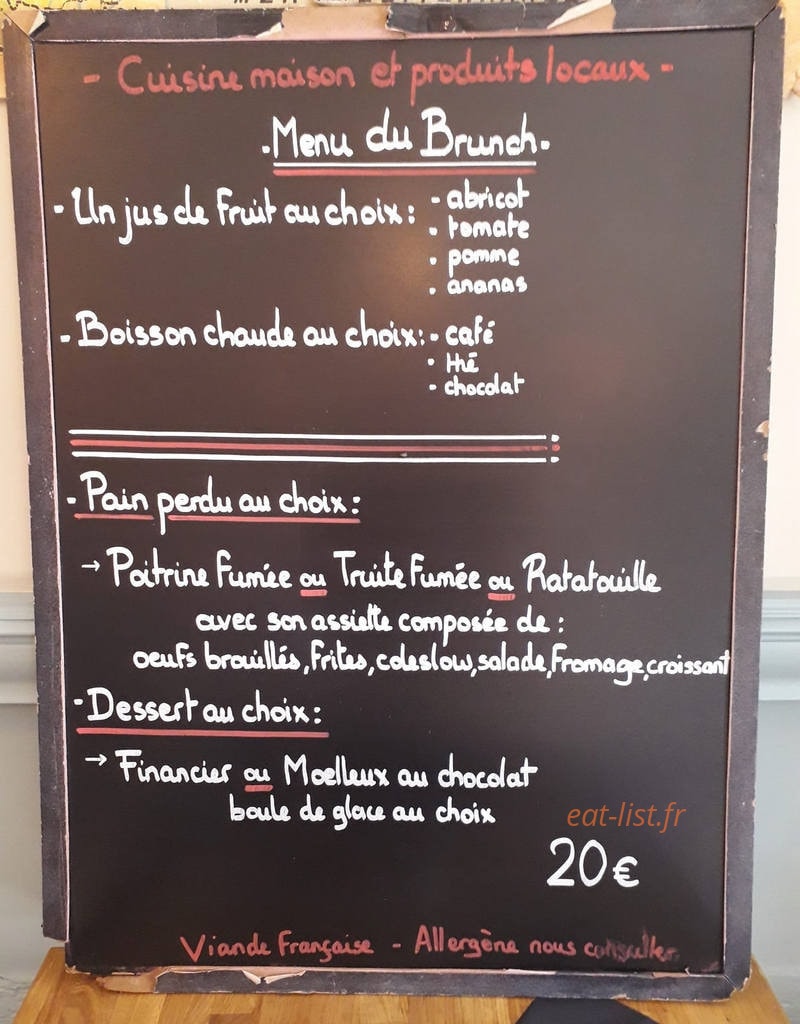 - Cuisine maison et produits locaux -
. Menu du Brunch .
- Un jus de fruit au choix : - abricot
. tomate
. pomme
. ananas
- Boisson chaude au choix : - café
. thé
- chocolat
- Pain perdu au choix :
→ Poitrine Fumée ou Truite Fumée ou Ratatouille
avec son assiette composée de :
oeufs brouillés, frites, coleslow, salade, fromage, croissant
- Dessert au choix :
→ Financier ou Moelleux au chocolat
boule de glace au choix
eat-list.fr
20€
Viande Française - Allergène nous consulter